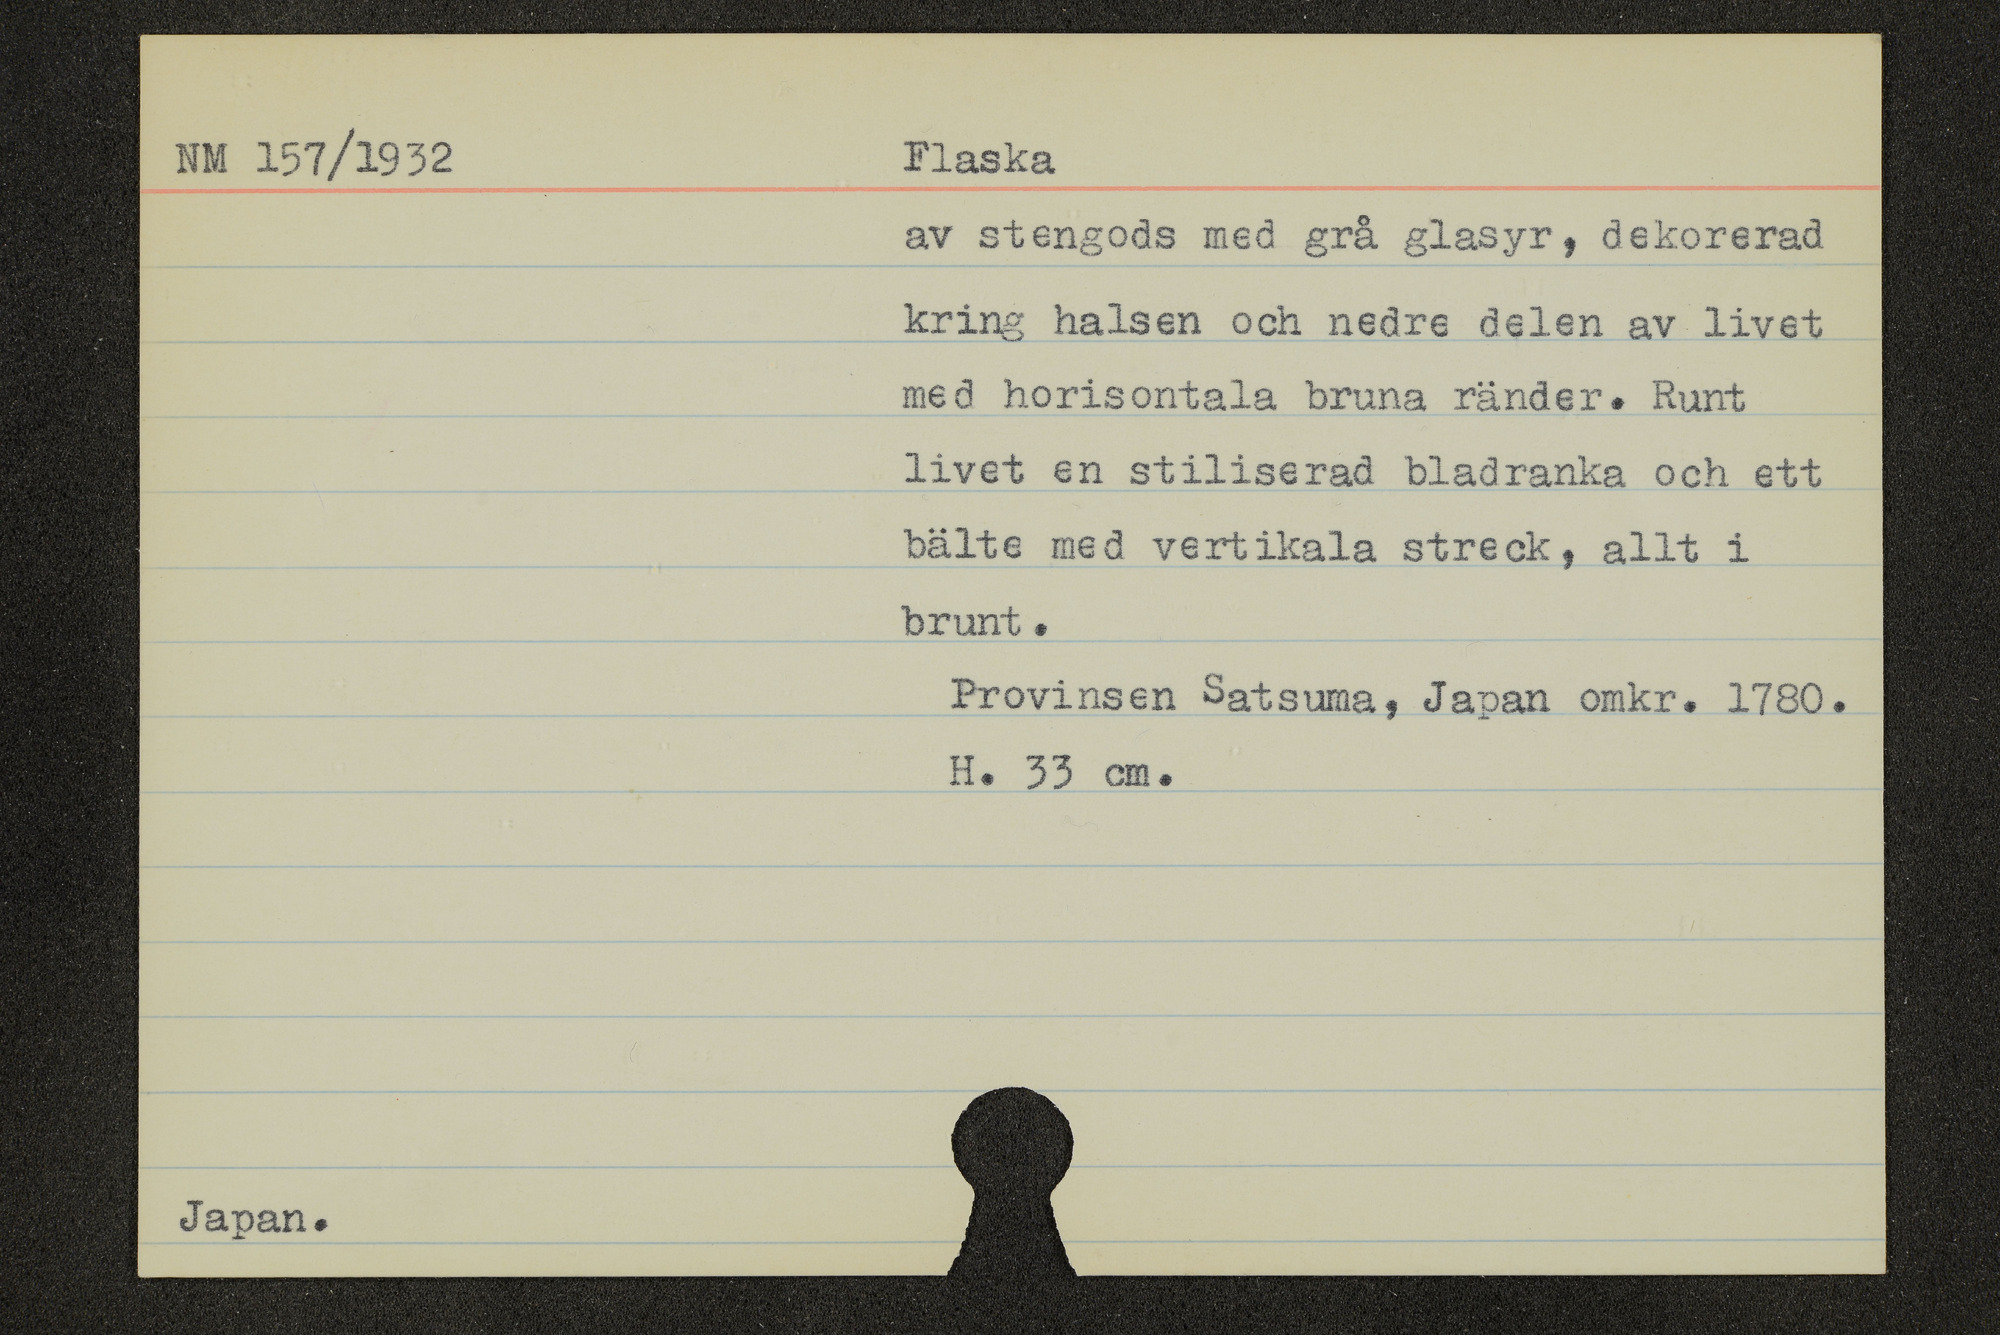 NM 157/1932 Flaska
av stengods med grå glasyr, dekorerad
kring halsen och nedre delen av livet
med horisontala bruna ränder. Runt
livet en stiliserad bladranka och ett
bälte med vertikala streck, allt i
brunt.
Provinsen Satsuma, Japan omkr. 1780.
H. 33 cm.
Japan.